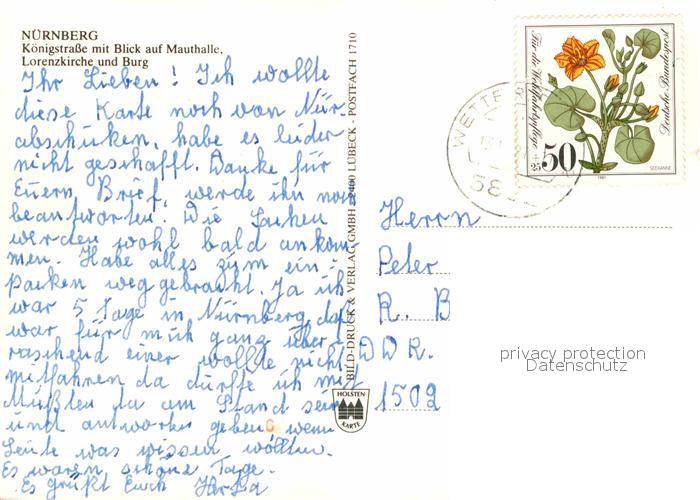 NÜRNBERG
Königstraße mit Blick auf Mauthalle,
Lorenzkirche und Burg
Ihr Lieben! Ich wollte
diese Karte noch von Nür-
abschüken, habe es leider
nicht geschafft. Danke für
Euern Brief, werde ihn noch
beantworten. Die Sachen
werden wohl bald ankom
men. Habe alles zum ein-
paken weg gebracht. Ja ich
war 5 Tage in Nürnberg, daß
war für mich ganz über
raschend einer wollte nicht
mitfahren da dürfte ich mit
Müßten ja am Stand sein
und antworten geben wenn
Leute was wissen wollten.
Es waren schöne Tage.
Es grüßt Euch Herta
BILD-DRUCK & VERLAG GMBH 2400 LÜBECK - POSTFACH 1710
HOLSTEN
KARTE
WETTE
58
Für die Wohlfahrtspflege
Deutsche Bundespost
50
+25
SEEKANNE
1981
Herrn
Peter
R. B
DDR.
1502
privacy protection
Datenschutz